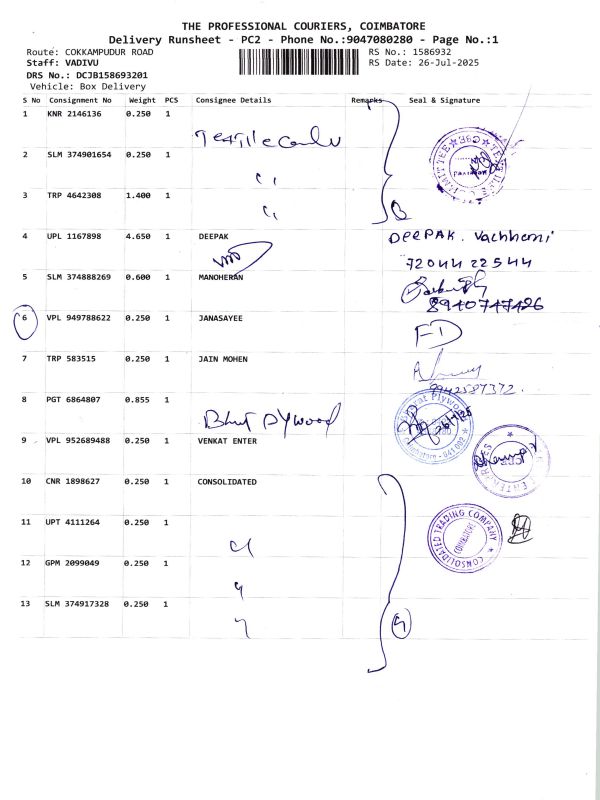 THE PROFESSIONAL COURIERS, COIMBATORE
Delivery Runsheet - PC2 - Phone No.:9047080280 - Page No.:1
Route: COKKAMPUDUR ROAD RS No.: 1586932
Staff: VADIVU RS Date: 26-Jul-2025
DRS No.: DCJB158693201
Vehicle: Box Delivery
S No Consignment No Weight PCS Consignee Details Remarks Seal & Signature
1 KNR 2146136 0.250 1
2 SLM 374901654 0.250 1
3 TRP 4642308 1.400 1
4 UPL 1167898 4.650 1 DEEPAK DEEPAK. Vachhani
72044 22544
5 SLM 374888269 0.600 1 MANOHERAN
8940747426
6 VPL 949788622 0.250 1 JANASAYEE
7 TRP 583515 0.250 1 JAIN MOHEN
9942587372.
8 PGT 6864807 0.855 1
Bhut Plywood
9 VPL 952689488 0.250 1 VENKAT ENTER
10 CNR 1898627 0.250 1 CONSOLIDATED
CONSOLIDATED TRADING COMPANY
COIMBATORE
11 UPT 4111264 0.250 1
12 GPM 2099049 0.250 1
13 SLM 374917328 0.250 1
4